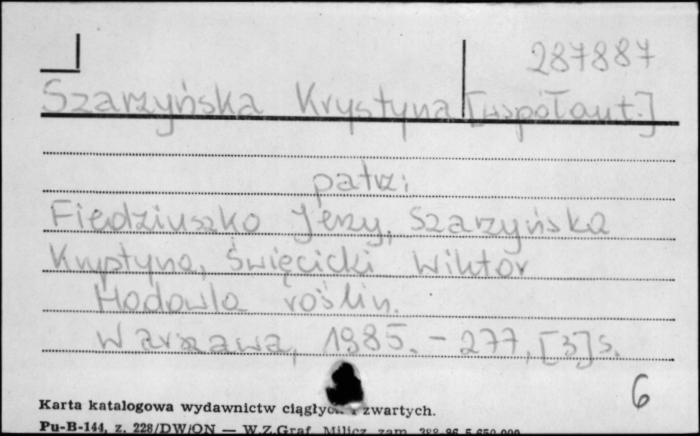 287887
Szarzyńska Krystyna [współaut.]
patrz:
Fiedziuszko Jerzy, Szarzyńska
Krystyna, Święcicki Wiktor
Hodowla roślin.
Warszawa, 1985. - 277, [3] s.
6
Karta katalogowa wydawnictw ciągłych i zwartych.
Pu-B-144, z. 228/DW/ON — W.Z.Graf. Milicz zam.